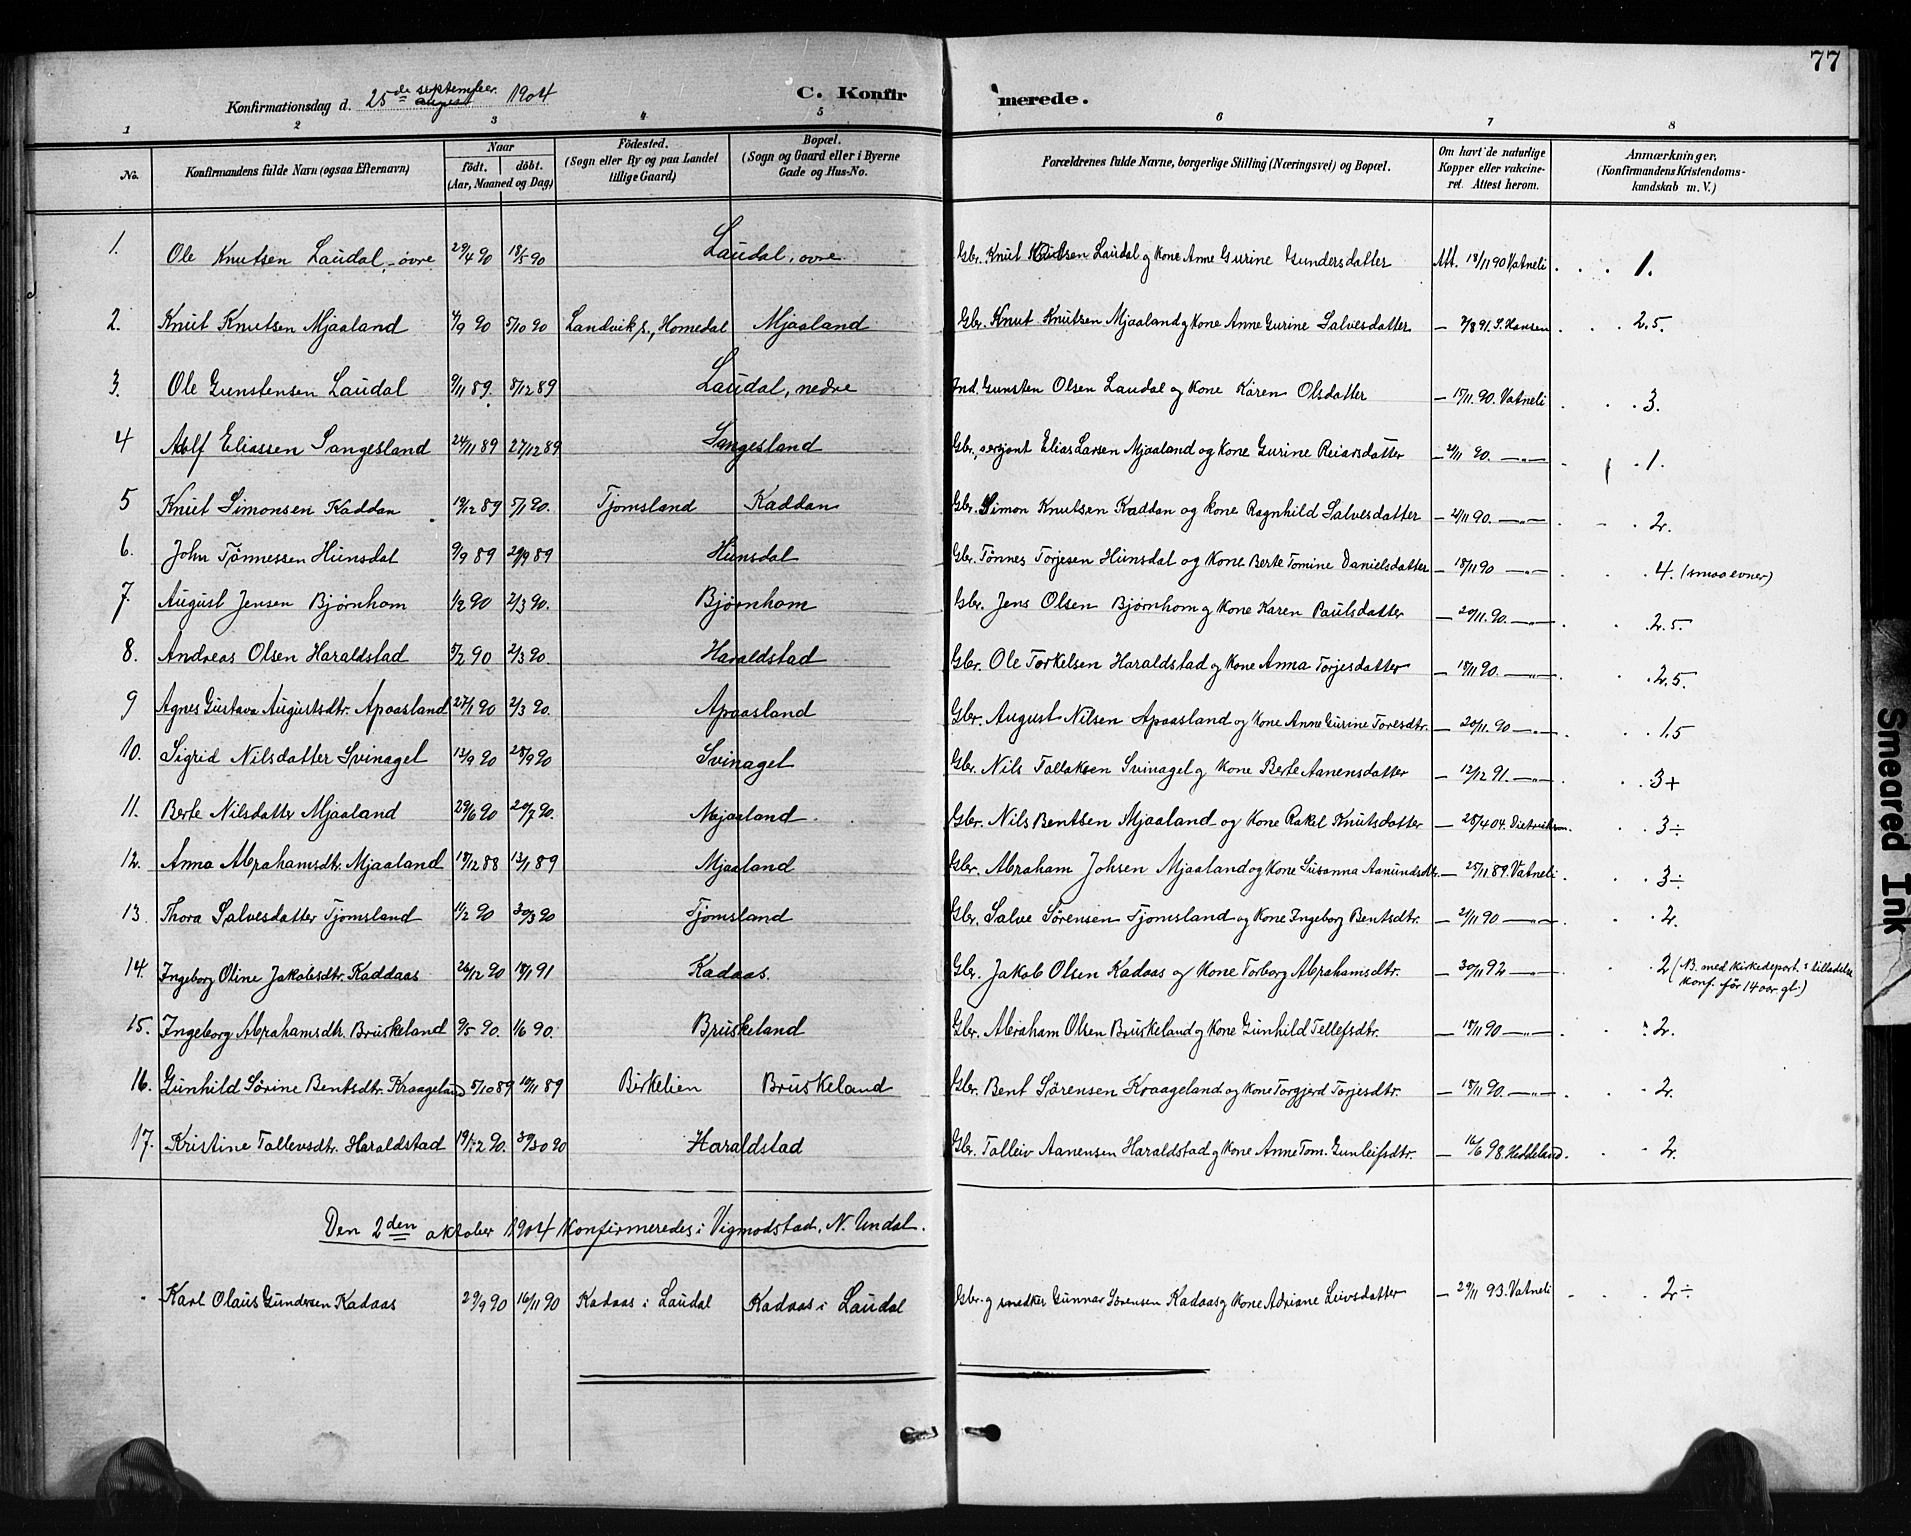 77
Konfirmationsdag d. 25de september august 1904
C. Konfirmerede.
1 2 3 4 5 6 7 8
No. Konfirmandens fulde Navn (ogsaa Efternavn) Naar født, døbt. (Aar, Maaned og Dag) Födested. (Sogn eller By og paa Landet tillige Gaard) Bopæl. (Sogn og Gaard eller i Byerne Gade og Hus-No. Forældrenes fulde Navne, borgerlige Stilling (Næringsvei) og Bopæl. Om havt de naturlige Kopper eller vakcineret. Attest herom. Anmærkninger. (Konfirmandens Kristendomskundskab m. V.)
1. Ole Knutsen Laudal, øvre 29/4 90 18/5 90 Laudal, øvre Gbr. Knut Knutsen Laudal og Kone Anne Gurine Gundersdatter Att. 18/11 90 Vatneli 1.
2. Knut Knutsen Mjaaland 4/9 90 5/10 90 Landvik s., Homedal Mjaaland Gbr. Knut Knutsen Mjaaland og Kone Anne Gurine Salvesdatter — 7/8 91. S. Hansen 2.5.
3. Ole Gunstensen Laudal 9/11 89. 8/12 89 Laudal, nedre Ind. Gunsten Olsen Laudal og Kone Karen Olsdatter — 17/11. 90. Vatneli 3.
4 Adolf Eliassen Sangesland 24/11 89 27/12 89 Sangesland Gbr., serjant Elias Larsen Mjaaland og Kone Gurine Reiarsdatter — 21/11 90. —"— 1.
5 Knut Simonsen Kaddan 19/12 89 5/1 90. Tjomsland Kaddan Gbr. Simon Knutsen Kaddan og Kone Ragnhild Salvesdatter — 21/11 90. —"— 2.
6. John Tønnessen Hunsdal 9/9 89 29/9 89 Hunsdal Gbr. Tønnes Torjesen Hunsdal og Kone Berte Tomine Danielsdatter — 18/11 90 —"— 4. (smaa evner)
7. August Jensen Bjørnhom 1/2 90 2/3 90. Bjørnhom Gbr. Jens Olsen Bjørnhom og Kone Karen Paulsdatter — 20/11. 90. —"— 2.5.
8. Andreas Olsen Haraldstad 5/2 90 2/3 90. Haraldstad Gbr. Ole Torkelsen Haraldstad og Kone Anna Torjesdatter — 18/11 90. —"— 2.5.
9 Agnes Gustava Augustsdtr. Apaasland 27/1 90 2/3 90. Apaasland Gbr. August Nilsen Apaasland og Kone Anne Gurine Toresdtr. — 20/11. 90 —"— 1.5
10. Sigrid Nilsdatter Svinagel 13/9 90 28/9 90 Svinagel Gbr. Nils Tallaksen Svinagel og Kone Berte Aanensdatter — 12/12 91. —"— 3+
11. Berte Nilsdatter Mjaaland 29/6 90 20/7 90. Mjaaland Gbr. Nils Bentsen Mjaaland og Kone Rakel Knutsdatter — 28/4 04. Dietrichson 3÷
12. Anna Abrahamsdtr. Mjaaland 18/12 88 13/1 89 Mjaaland Gbr. Abraham Johsen Mjaaland og Kone Susanna Aanundsdtr. — 25/11 89. Vatneli 3÷
13. Thora Salvesdatter Tjomsland 11/2 90 30/3 90 Tjomsland Gbr. Salve Sørensen Tjomsland og Kone Ingeborg Bentsdtr. — 21/11 90 —"— 2.
14. Ingeborg Oline Jakobsdtr. Kaddaas 26/12 90 18/1 91 Kadaas. Gbr. Jakob Olsen Kadaas og Kone Torborg Abrahamsdtr. — 30/11 92 —"— 2 (NB. med Kirkedepart.s tilladelse konf. før 14 aar gl.)
15. Ingeborg Abrahamsdtr. Bruskeland 9/5 90. 1/6 90. Bruskeland Gbr. Abraham Olsen Bruskeland og Kone Gunhild Tellefsdtr. — 18/11 90 —"— 2.
16. Gunhild Sørine Bentsdtr. Kraageland 5/10 89 10/11 89 Birkelien Bruskeland Gbr. Bent Sørensen Kraageland og Kone Torgjerd Torjesdtr. — 18/11 90. —"— 2.
17. Kristine Tallevsdtr. Haraldstad 19/12 90. 30/30 90 Haraldstad Gbr. Talleiv Aanensen Haraldstad og Kone Anne Tom. Gunleifsdtr. — 16/6 98. Heddeland. 2.
Den 2den oktober 1904 konfirmeredes i Vigmodstad, N. Undal.
Karl Olaus Gundersen Kadaas 29/9 90 16/11 90 Kadaas i Laudal Kadaas i Laudal Gbr. og snedker Gunnar Sørensen Kadaas og Kone Adriane Leivsdatter — 29/11 93. Vatneli 2÷
Smeared Ink